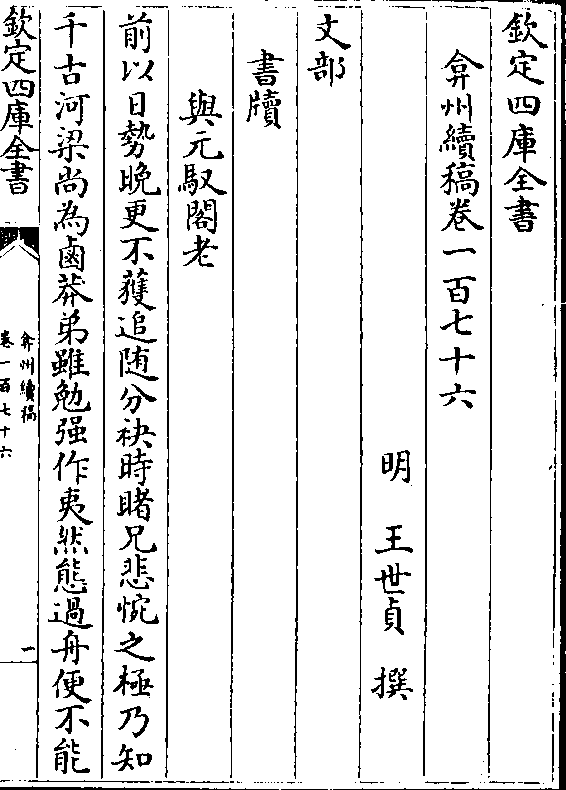 欽定四庫全書
弇州續稿卷一百七十六
明 王世貞 撰
文部
書牘
與元馭閣老
前以日勢晩更不獲追随分袂時睹兄悲惋之極乃知
千古河梁尚為鹵莽弟雖勉强作夷然態過舟便不能
欽定四庫全書
弇州續稿
卷一百七十六
一